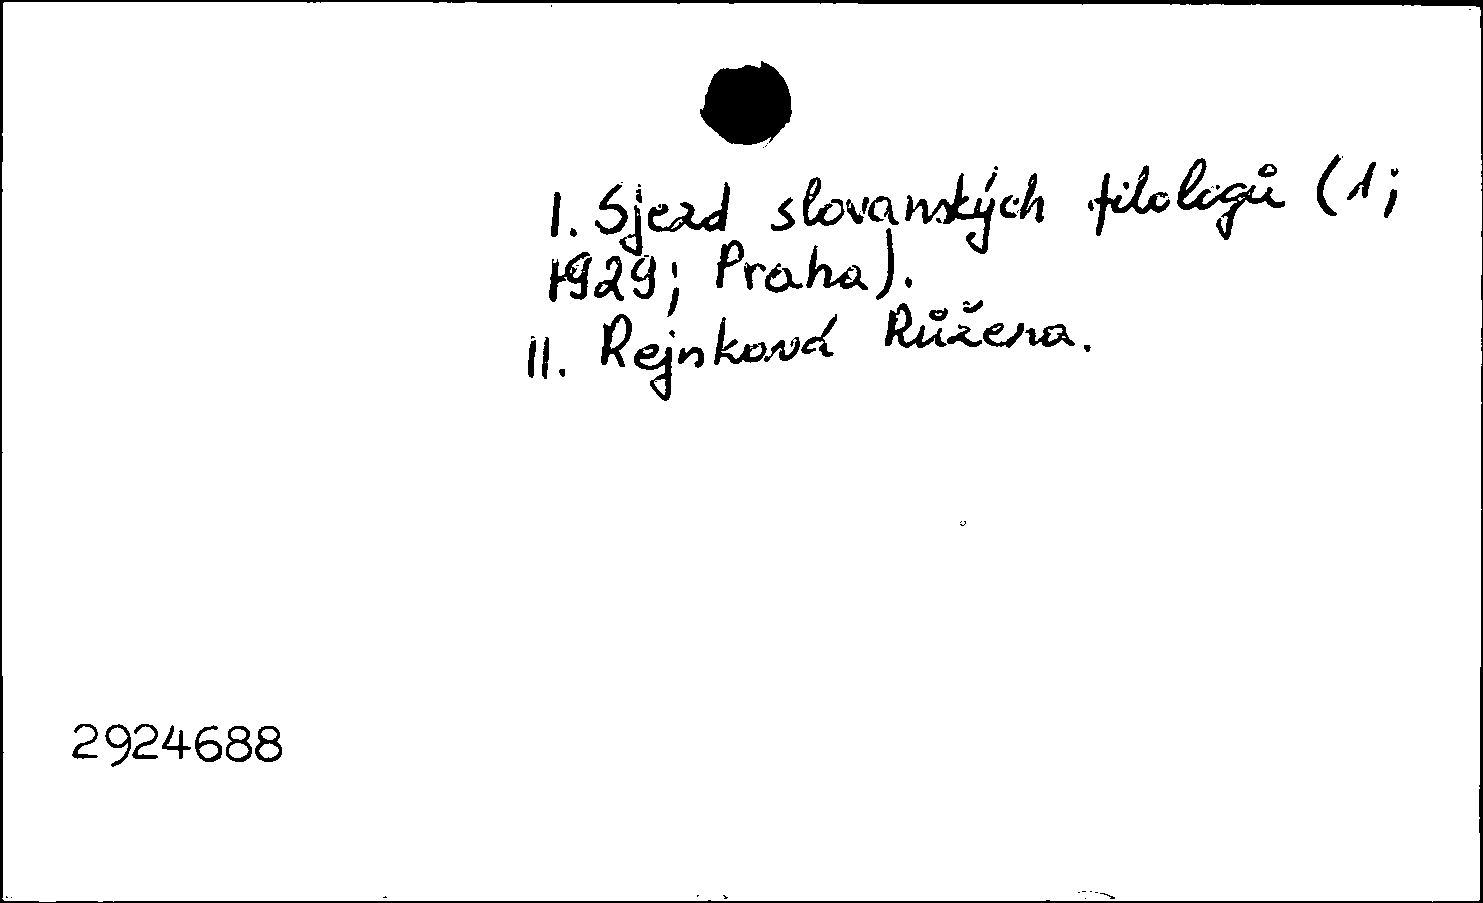 I. Sjezd slovanských filologů (1;
1929; Praha).
II. Rejnková Růžena.
2924688